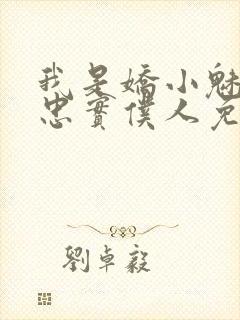 我是嬌小魅
忠實僕人免
劉卓毅